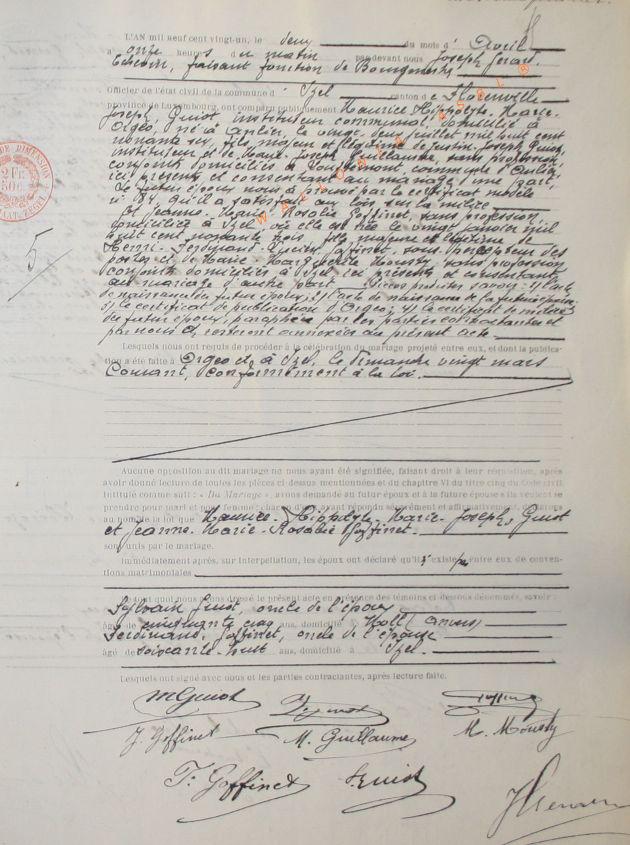 L'AN mil neuf cent vingt-un, le deux du mois d' Avril
à onze heures du matin par devant nous Joseph Gérard,
Echevin, faisant fonction de Bourgmestre
Officier de l'état civil de la commune d' Izel canton de Florenville
province de Luxembourg, ont comparu publiquement Maurice-Hippolyte-Marie-
Joseph, Guiot instituteur communal domicilié à
Orgeo, né à Anlier, le vingt-deux juillet mil huit cent
nonante six, fils majeur et légitime de Justin-Joseph Guiot,
instituteur et de Marie-Joseph Guillaume, sans profession,
conjoints domiciliés à Louftémont, commune d'Anlier,
ici présents et consentant au mariage d'une part,
Le futur époux nous a prouvé par le certificat modèle
n° 34, qu'il a satisfait aux lois sur la milice
Et Jeanne-Marie-Rosalie Goffinet, sans profession,
domiciliée à Izel, où elle est née le vingt janvier mil
huit cent nonante trois, fille majeure et légitime de
Henri-Ferdinand- Goffinet, sous-percepteur des
postes et de Marie-Marguerite Mousty, sans profession
conjoints domiciliés à Izel ici présents et consentants
au mariage d'autre part Pièces produites savoir: 1) l'acte
de naissance du futur époux; 2) l'acte de naissance de la future épouse;
3) le certificat de publication d'Orgeo; 4) le certificat de milice
du futur époux, paraphés par les parties contractantes et
par nous et resteront annexés au présent acte
Lesquels nous ont requis de procéder à la célébration du mariage projeté entre eux, et dont la publica-
tion a été faite à Orgeo et à Izel, le dimanche vingt mars
courant, conformément à la loi.
Aucune opposition au dit mariage ne nous ayant été signifiée, faisant droit à leur réquisition, après
avoir donné lecture de toutes les pièces ci-dessus mentionnées et du chapitre VI du titre cinq du Code civil,
intitulé comme suit : « Du Mariage », avons demandé au futur époux et à la future épouse s'ils veulent se
prendre pour mari et pour femme; chacun d'eux ayant répondu séparément et affirmativement, déclarons
au nom de la loi que Maurice-Hippolyte-Marie-Joseph, Guiot
et Jeanne-Marie-Rosalie Goffinet
sont unis par le mariage.
Immédiatement après, sur interpellation, les époux ont déclaré qu'il existe entre eux de conven-
tions matrimoniales
De tout quoi nous avons dressé le présent acte en présence des témoins ci-dessous dénommés, savoir :
Sylvain Guiot, oncle de l'époux
âgé de cinquante cinq ans, domicilié à Moll (Anvers)
Ferdinand, Goffinet, oncle de l'épouse
âgé de soixante-huit ans, domicilié à Izel
Lesquels ont signé avec nous et les parties contractantes, après lecture faite.
M Guiot J Guiot Goffinet
J. Goffinet M. Guillaume M. Mousty
F. Goffinet S. Guiot
5
2 Fr.
50c.